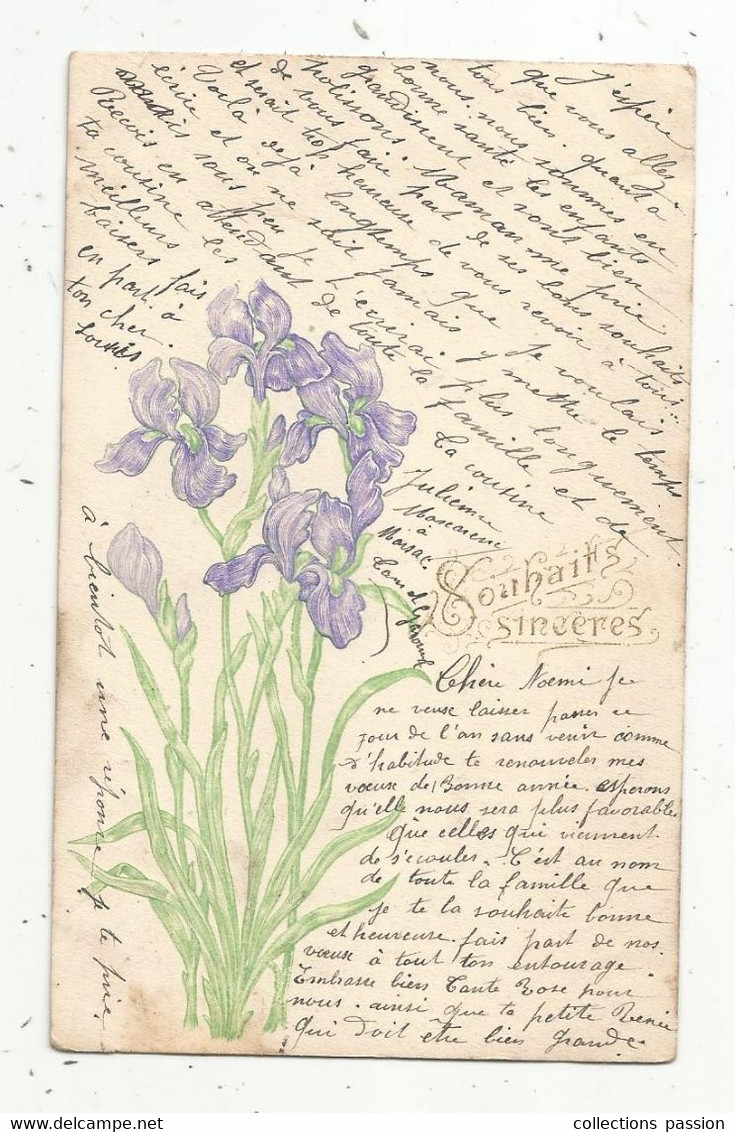 Souhaits
sincères
Chère Noemi je
ne veuse laisser passer ce
jour de l'an sans venir comme
d'habitude te renouveler mes
vœuse de Bonne année. esperons
qu'elle nous sera plus favorable
que celles qui viennent
de s'ecouler. C'est au nom
de toute la famille que
je te la souhaite bonne
et heureuse. fais part de nos
vœuse à tout ton entourage
Embrasse bien Tante Rose pour
nous. ainsi que ta petite Renée
qui doit être bien grande.
J'espère
que vous allez
tous bien. quant a
nous. nous sommes en
bonne santé les enfants
grandissent et sont bien
polissons. Maman me prie
de vous faire part de ses bons souhaits
et serait trop heureuse de vous revoir à tous...
Voilà dejà longtemps que je voulais
écrire et on ne sait jamais y mettre le temps
mais sous peu je t'ecrirai plus longuement.
Recois en attendant de toute la famille et de
ta cousine les
meilleurs
baisers fais
en part à
ton cher
Louis
Ta cousine
Julienne
à
Moissac
à bientot une réponse je te prie.
collections passion